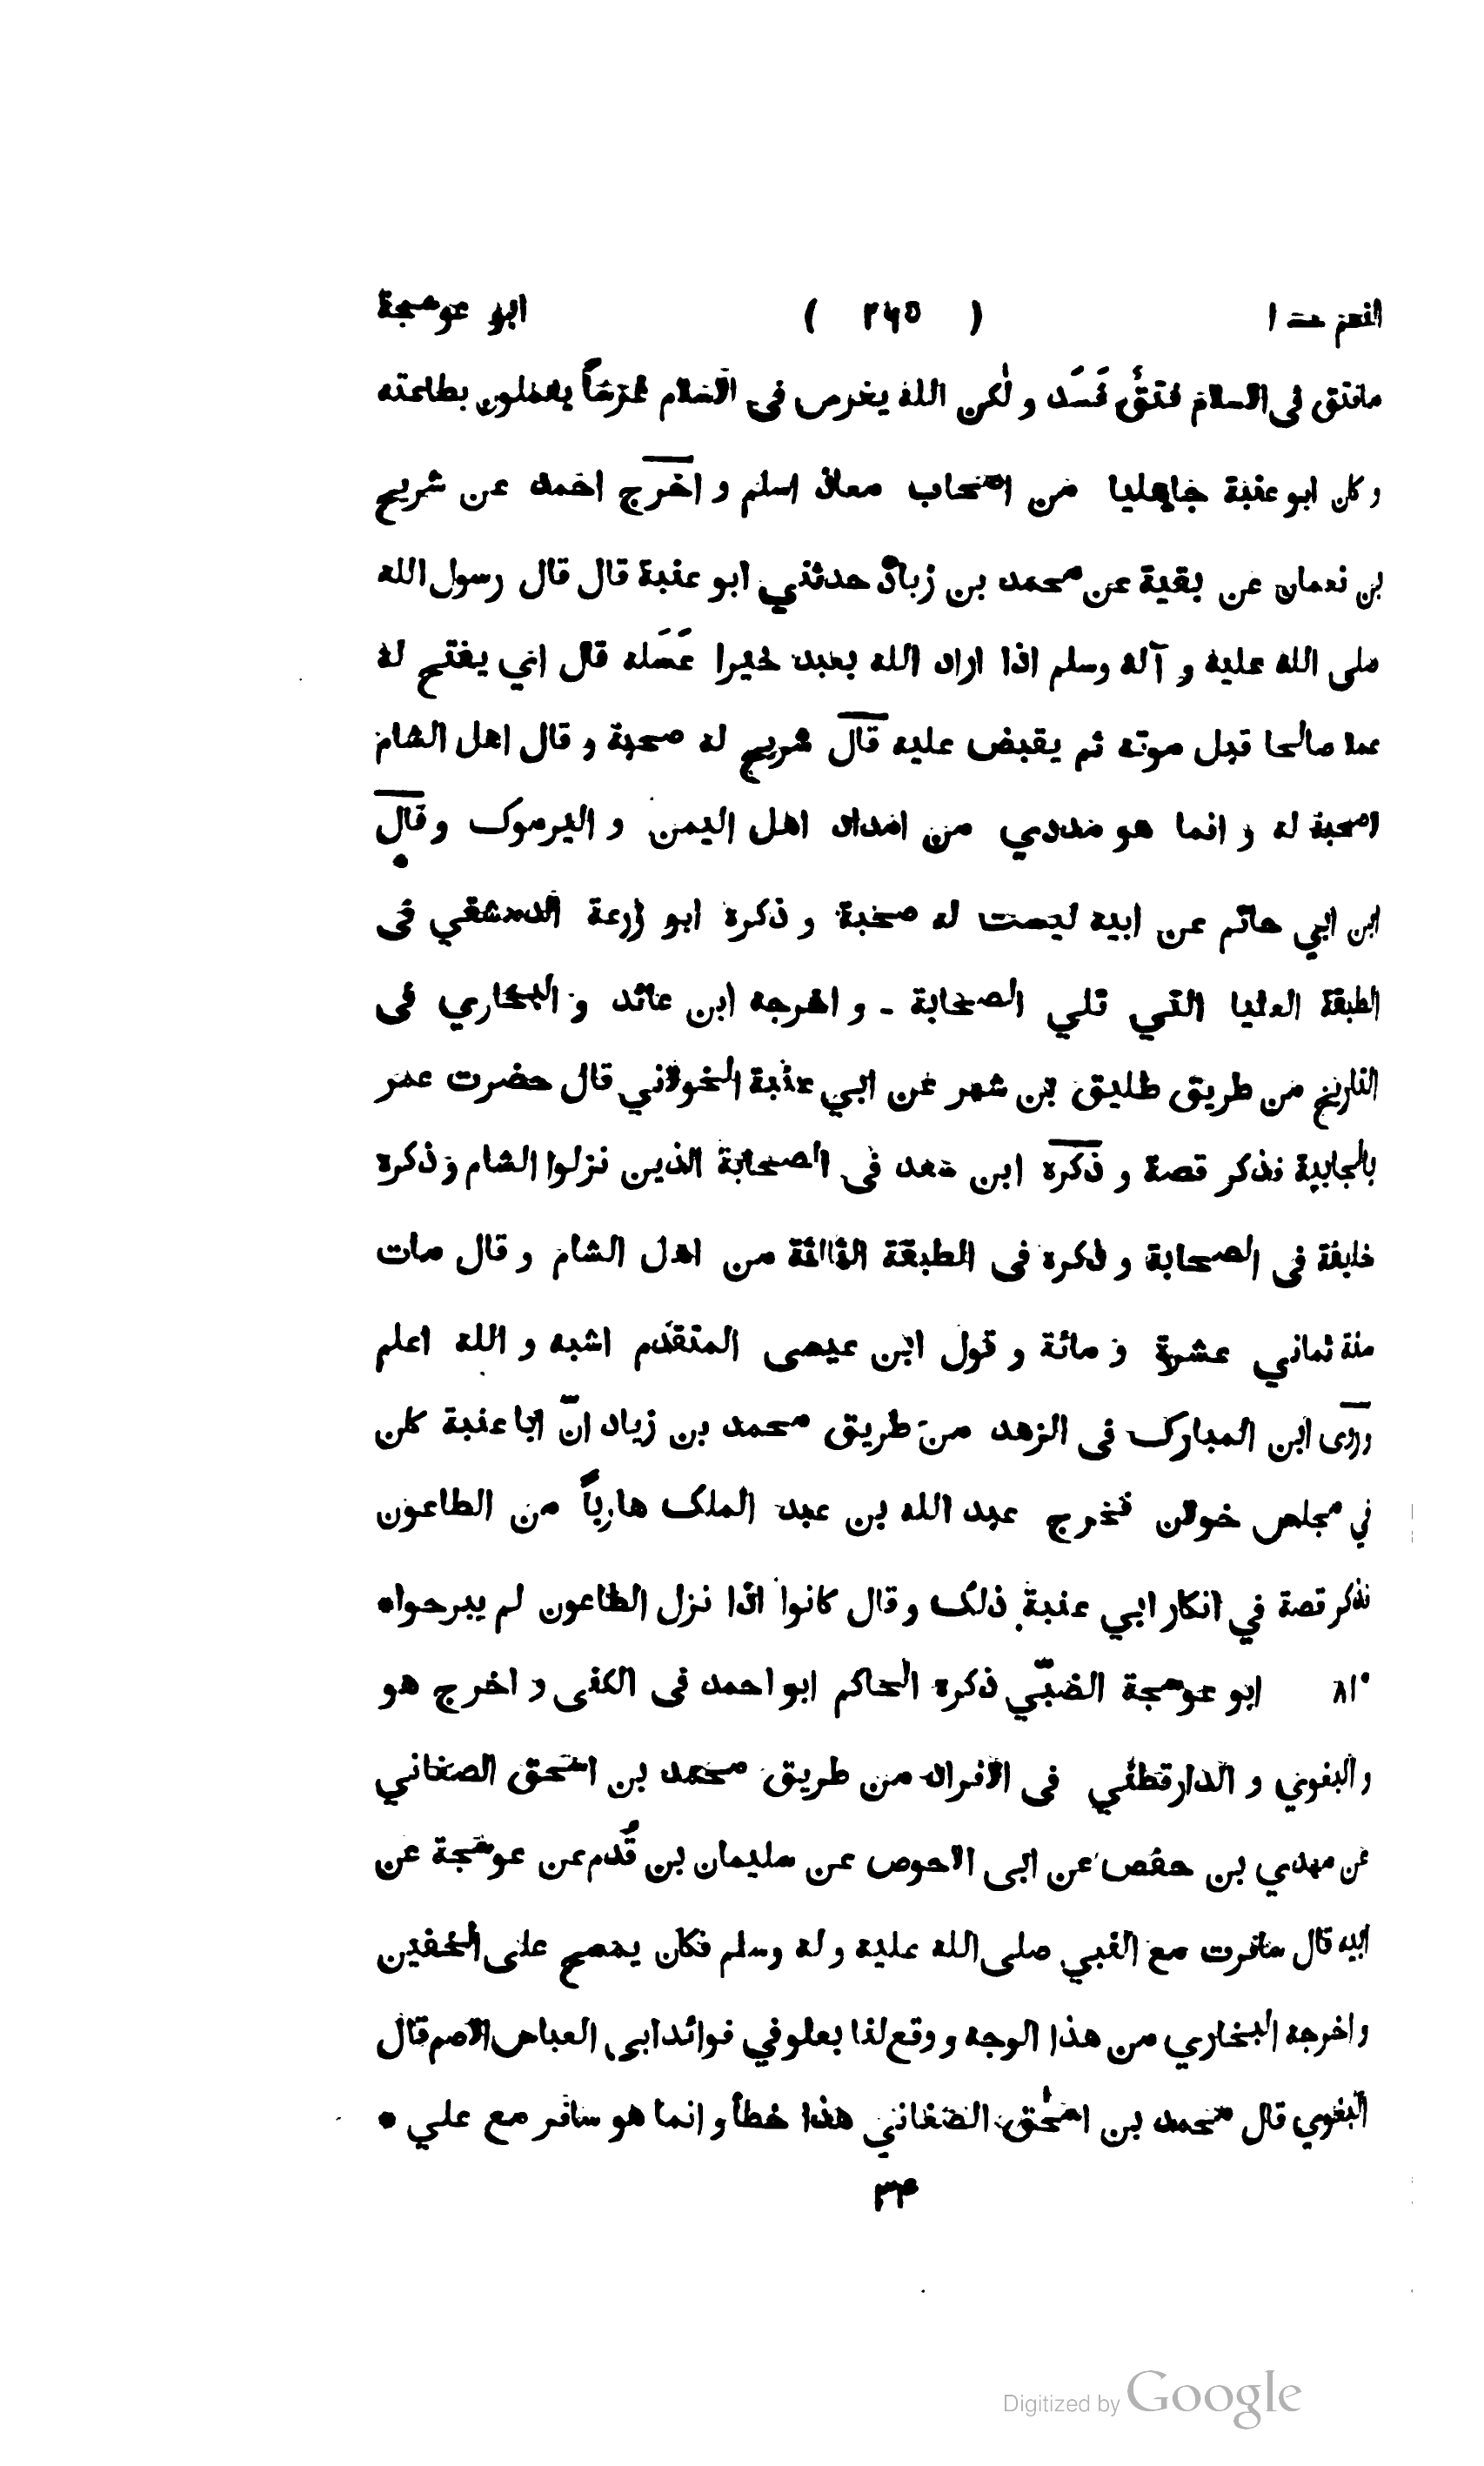 القسم ( ٢٦٥ ) ابو عوسجة
ما فتق فى الاسلام فتق فسد و لكن الله يغرس فى الاسلام غرسا يعملون بطاعته
و كان ابو عنبة جاهليا من اصحاب معاذ اسلم و اخرج احمد عن شريح
بن نعمان عن بقية عن محمد بن زياد حدثني ابو عنبة قال قال رسول الله
صلى الله عليه و آله وسلم اذا اراد الله بعبد خيرا عَسَله قال اي يفتح له
عملا صالحا قبل موته ثم يقبض عليه قال شريح له صحبة و قال اهل الشام
لا صحبة له و انما هو مددي من امداد اهل اليمن و اليرموك وقال
ابن ابي حاتم عن ابيه ليست له صحبة و ذكره ابو زرعة الدمشقي فى
الطبقة العليا التي تلي الصحابة - و اخرجه ابن عائد و البخاري فى
التاريخ من طريق طليق بن شهر عن ابي عنبة الخولاني قال حضرت عمر
بالجابية فذكر قصة و ذكره ابن سعد فى الصحابة الذين نزلوا الشام و ذكره
خليفة فى الصحابة و ذكره فى الطبقة الثالثة من اهل الشام و قال مات
سنة ثماني عشرة و مائة و قول ابن عيسى المتقدم اشبه و الله اعلم
وروى ابن المبارك فى الزهد من طريق محمد بن زياد انّ ابا عنبة كان
في مجلس خولان فخرج عبد الله بن عبد الملك هارباً من الطاعون
فذكر قصة في انكار ابي عنبة ذلك و قال كانوا اذا نزل الطاعون لم يبرحوا •
٨١٠ ابو عوسجة الضبّي ذكره الحاكم ابو احمد فى الكنى و اخرج هو
والبغوي و الدارقطني فى الافراد من طريق محمد بن اسحق الصغاني
عن مهدي بن حفص عن ابى الاحوص عن سليمان بن قُدم عن عوسجة عن
ابيه قال سافرت مع النبي صلى الله عليه و له وسلم فكان يمسح على الخفين
واخرجه البخاري من هذا الوجه و وقع لنا بعلو في فوائد ابى العباس الاصم قال
البغوي قال محمد بن اسحٰق الصغاني هذا خطأ و انما هو سافر مع علي •
٣٤
Digitized by Google